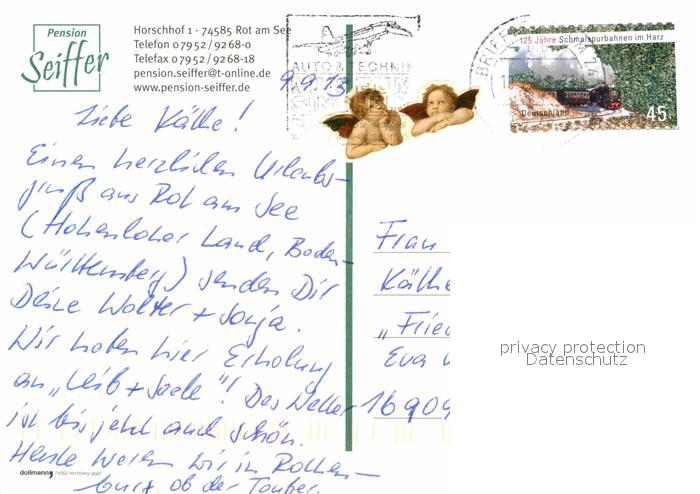 Pension
Seiffer
Horschhof 1 · 74585 Rot am See
Telefon 0 79 52 / 92 68-0
Telefax 0 79 52 / 92 68-18
pension.seiffer@t-online.de
www.pension-seiffer.de
AUTO & TECHNIK
BRIEFZ
125 Jahre Schmalspurbahnen im Harz
Deutschland
45
9.9.13
Liebe Käthe!
Einen herzlichen Urlaubs-
gruß aus Rot am See
(Hohenloher Land, Baden-
Württemberg) senden Dir
Deine Walter + Sonja.
Wir haben hier Erholung
an „Leib + Seele"! Das Wetter
ist bis jetzt auch schön.
Heute waren wir in Rothen-
burg ob der Tauber.
Frau
Käthe
„Fried
Eva
16909
privacy protection
Datenschutz
dollmann, 74592 Kirchberg/Jagst